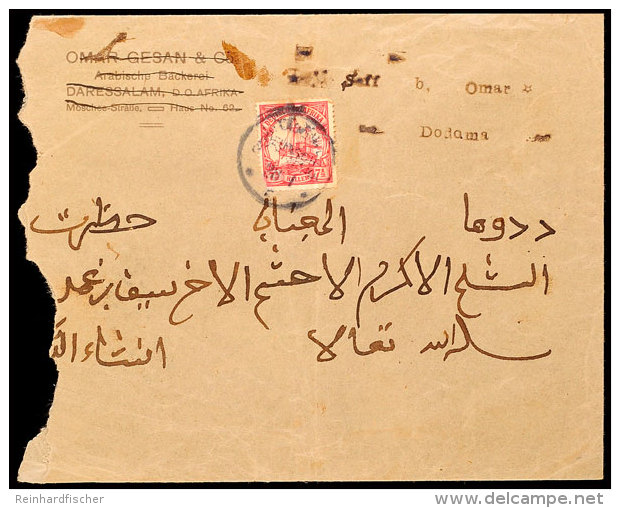 OMAR GESAN & Co.
Arabische Bäckerei
DARESSALAM, D.O.AFRIKA
Moschee-Straße, Haus No. 62.
Seff b. Omar
Dodoma
7½
ددوما الى جناب حضرت
الشيخ الاكرم الاحشم الاخ سيف بن عمر
سلمه الله تعالا انشاء الله
Reinhardfischer
delcampe.net